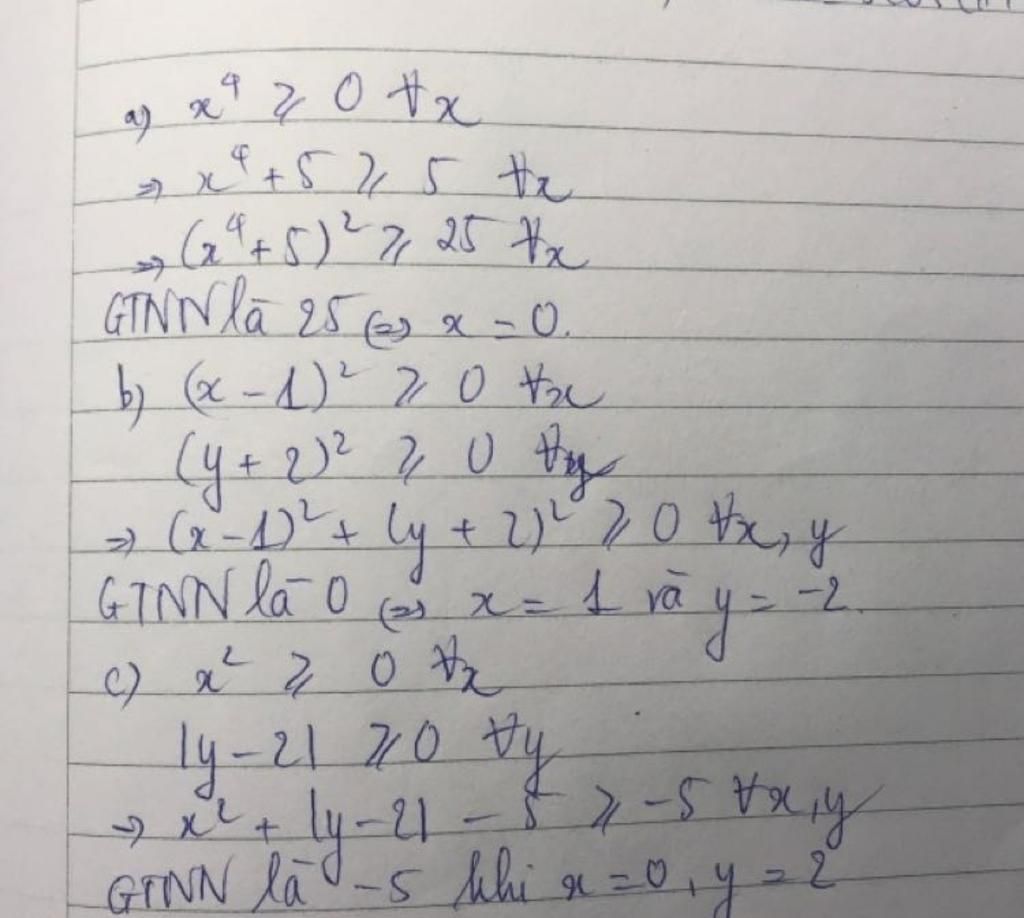 a) x⁴ ≥ 0 ∀x
⇒ x⁴ + 5 ≥ 5 ∀x
⇒ (x⁴ + 5)² ≥ 25 ∀x
GTNN là 25 ⇔ x = 0.
b) (x - 1)² ≥ 0 ∀x
(y + 2)² ≥ 0 ∀y
⇒ (x - 1)² + (y + 2)² ≥ 0 ∀x, y
GTNN là 0 ⇔ x = 1 và y = -2.
c) x² ≥ 0 ∀x
|y - 2| ≥ 0 ∀y
⇒ x² + |y - 2| - 5 ≥ -5 ∀x, y
GTNN là -5 khi x = 0, y = 2